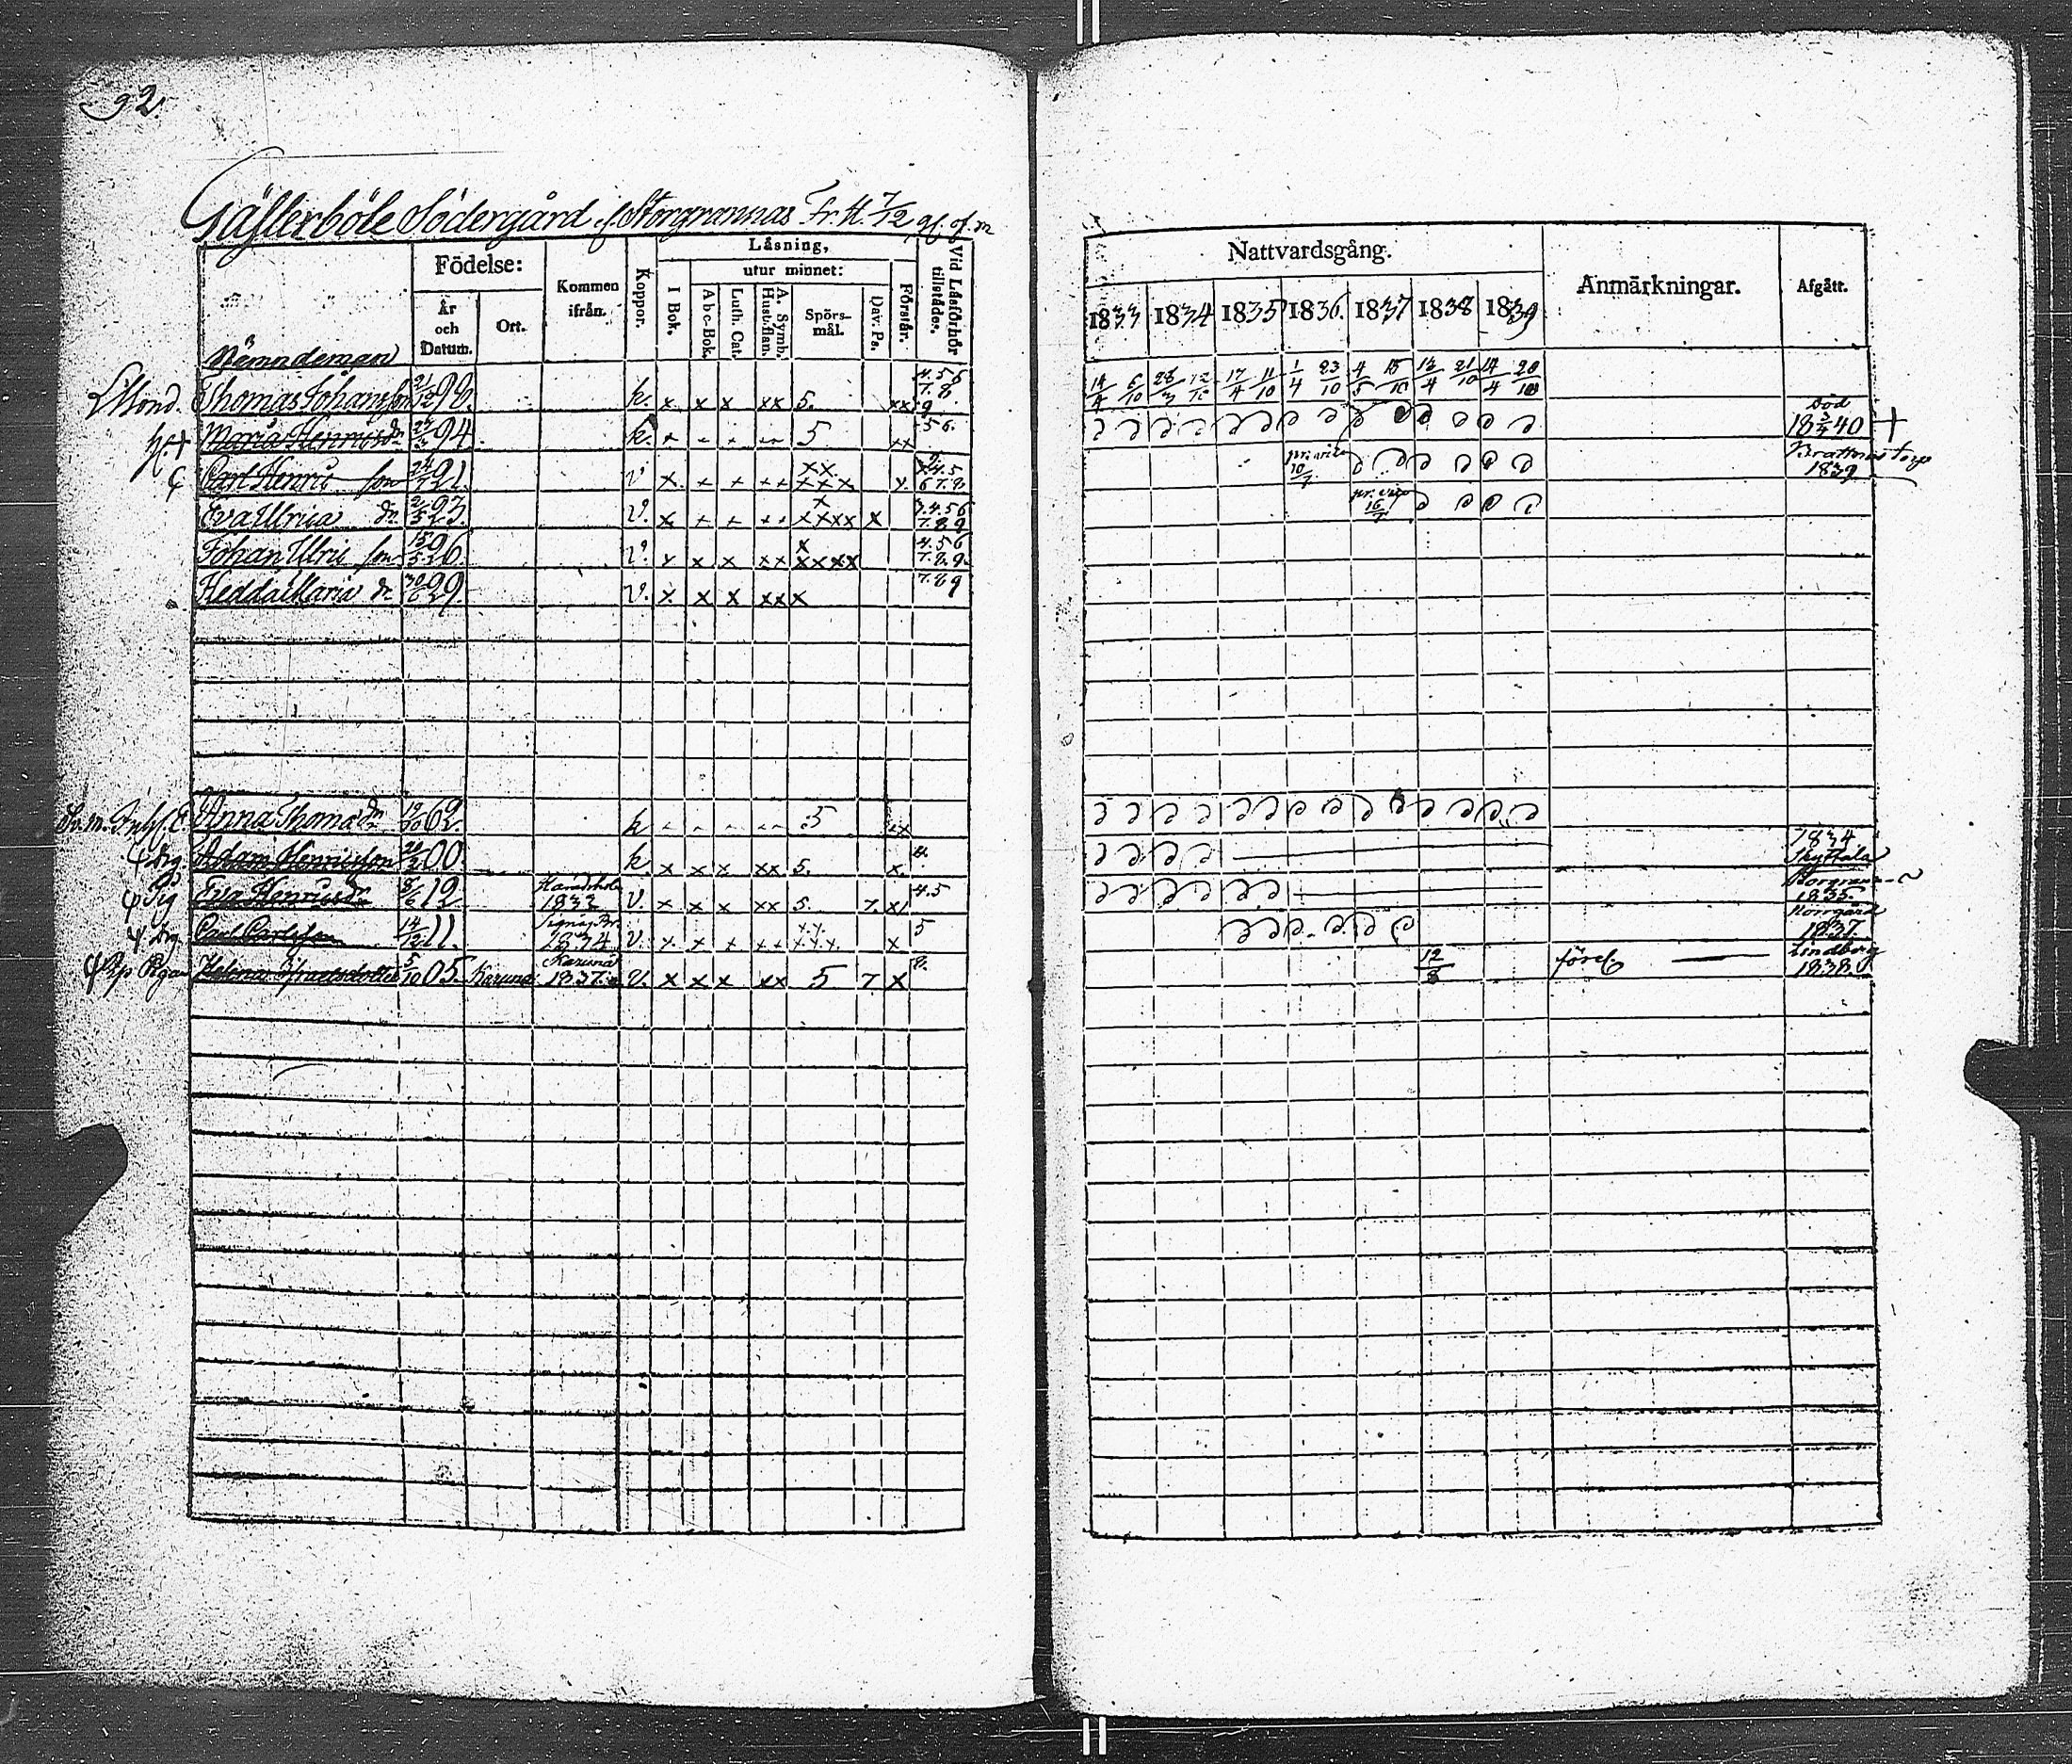 92.
Gällerböle Södergård i Storgrannas Fr. H. 7/12
Födelse: Kommen ifrån. Koppor. Läsning, Vid Läsförhör tillstädes.
År och Datum. Ort. I Bok. utur minnet: Förstår.
A b c-Bok. Luth. Cat. A. Symb. Hust.flan. Spörsmål. Dav. Ps.
Nämndeman
Thomas Johansson 21/12 98. k. x x x xx 5. xx 4.5 6 7.8. 9
h. + Maria Henricsdr 94. k. 5 xx 5 6.
Carl Henric son 24/7 21. v x. + + ++ xx xxx x. 4.5 6 7.8
Eva Ulrica dr. 23. v. x + + ++ x xxxx x 3.4.5 6 7.8 9
Johan Ulric son 15/5 26. v. x x x xx x xxxx 4.5 6 7.8.9.
Hedda Maria dr 29. v. x x x xx x 7.8 9
Anna Thomasdr 19/10 62. k 5 xx
Drg. Adam Henricsson 20/2 00. k. x x x xx 5. x. 4.
Pig Eva Henricsdr 8/6 12 1833 V. x x x xx 5. 7. x 4.5
Drg. Carl Carlsson 14/12 11. 1834 V. x x x xx xx xxx. x 5
Helena Israelsdotter 5/10 05. Karuna Karuna 1837. V. x x x xx 5 7 x 8.
Nattvardsgång. Anmärkningar. Afgått.
1833 1834 1835 1836. 1837 1838 1839
14/4 6/10 28/3 12/10 17/4 11/10 1/4 23/10 4/5 15/10 13/4 21/10 14/4 20/10
död 18 3/7 40 +
10/7 Brattnäs torp 1839
16/7
1834 Skyttala
1835.
Norrgård 1837.
12/8 föreb Lindberg 1838.